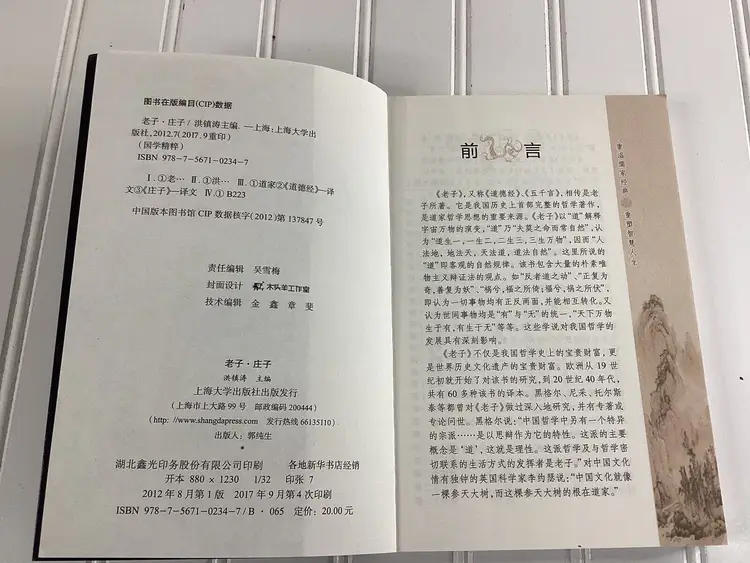 图书在版编目(CIP)数据
老子·庄子/洪镇涛主编.—上海:上海大学出
版社,2012.7(2017.9重印)
(国学精粹)
ISBN 978-7-5671-0234-7
Ⅰ.①老… Ⅱ.①洪… Ⅲ.①道家②《道德经》—译
文③《庄子》—译文 Ⅳ.①B223
中国版本图书馆CIP数据核字(2012)第137847号
责任编辑 吴雪梅
封面设计 木头羊工作室
技术编辑 金鑫 章斐
老子·庄子
洪镇涛 主编
上海大学出版社出版发行
(上海市上大路99号 邮政编码200444)
(http://www.shangdapress.com 发行热线66135110)
出版人:郭纯生
*
湖北鑫光印务股份有限公司印刷 各地新华书店经销
开本 880×1230 1/32 印张 7
2012年8月第1版 2017年9月第4次印刷
ISBN 978-7-5671-0234-7/B·065 定价:20.00元
前言
《老子》,又称《道德经》、《五千言》,相传是老
子所著。它是我国历史上首部完整的哲学著作,
是道家哲学思想的重要来源。《老子》以“道”解释
宇宙万物的演变,“道”乃“夫莫之命而常自然”,认
为“道生一,一生二,二生三,三生万物”,因而“人
法地,地法天,天法道,道法自然”。这里所说的
“道”即客观的自然规律。该书包含大量的朴素唯
物主义辩证法的观点。如“反者道之动”、“正复为
奇,善复为妖”、“祸兮,福之所倚;福兮,祸之所伏”,
即认为一切事物均有正反两面,并能相互转化。又
认为世间事物均是“有”与“无”的统一,“天下万物
生于有,有生于无”等等。这些学说对我国哲学的
发展具有深刻影响。
《老子》不仅是我国哲学史上的宝贵财富,更
是世界历史文化遗产的宝贵财富。欧洲从19世
纪初就开始了对该书的研究,到20世纪40年代,
共有60多种该书的译本。黑格尔、尼采、托尔斯
泰等都曾对《老子》做过深入地研究,并有专著或
专论问世。黑格尔说:“中国哲学中另有一个特异
的宗派……是以思辨作为它的特性。这派的主要
概念是‘道’,这就是理性。这派哲学及与哲学密
切联系的生活方式的发挥者是老子。”对中国文化
情有独钟的英国科学家李约瑟说:“中国文化就像
一棵参天大树,而这棵参天大树的根在道家。”
重温儒家经典
重塑智慧人生